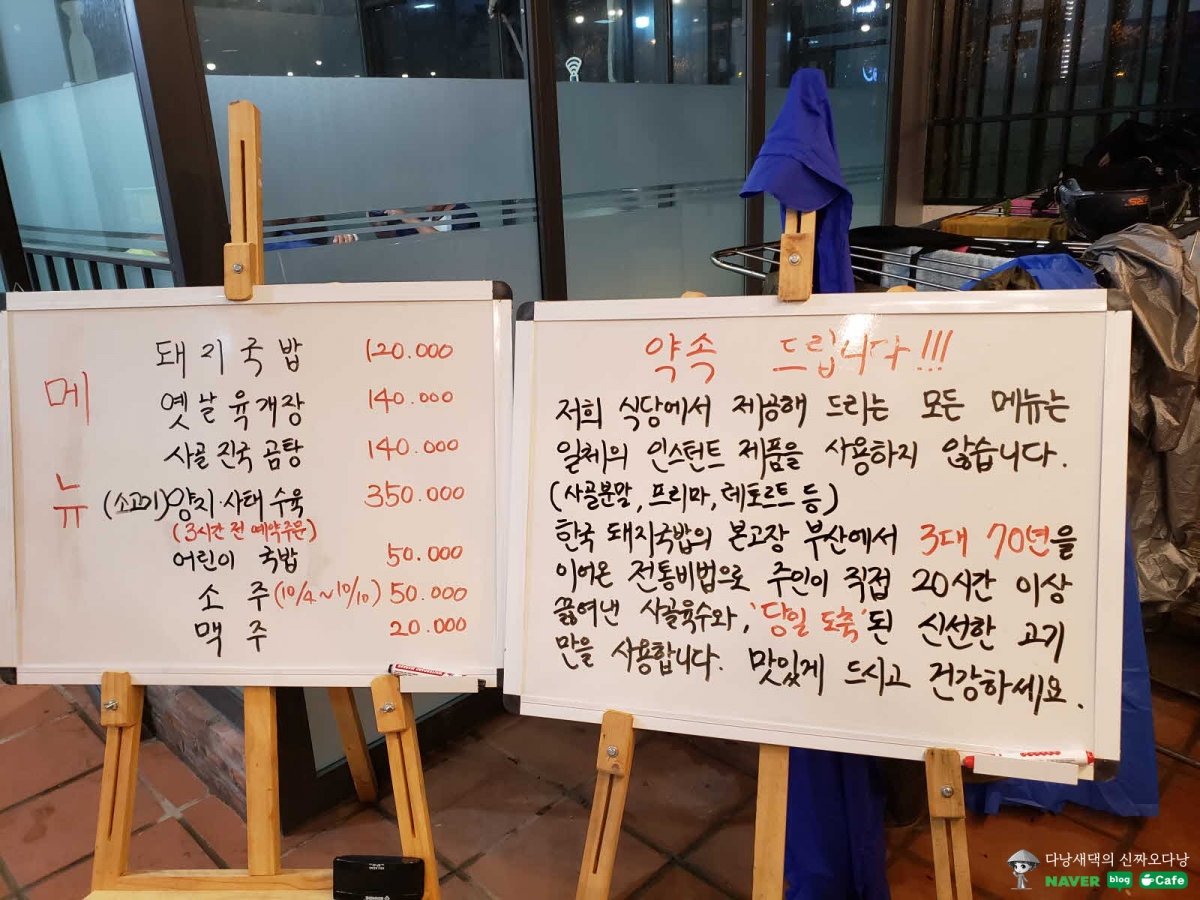 메뉴
돼지국밥 120.000
옛날육개장 140.000
사골진국곰탕 140.000
(소고기)양지·사태수육 350.000
(3시간 전 예약주문)
어린이 국밥 50.000
소주(10/4~10/10) 50.000
맥주 20.000
약속 드립니다!!!
저희 식당에서 제공해 드리는 모든 메뉴는
일체의 인스턴트 제품을 사용하지 않습니다.
(사골분말, 프리마, 레토르트 등)
한국 돼지국밥의 본고장 부산에서 3대 70년을
이어온 전통비법으로 주인이 직접 20시간 이상
끓여낸 사골육수와, '당일 도축'된 신선한 고기
만을 사용합니다. 맛있게 드시고 건강하세요.
다낭새댁의 신짜오다낭
NAVER blog Cafe